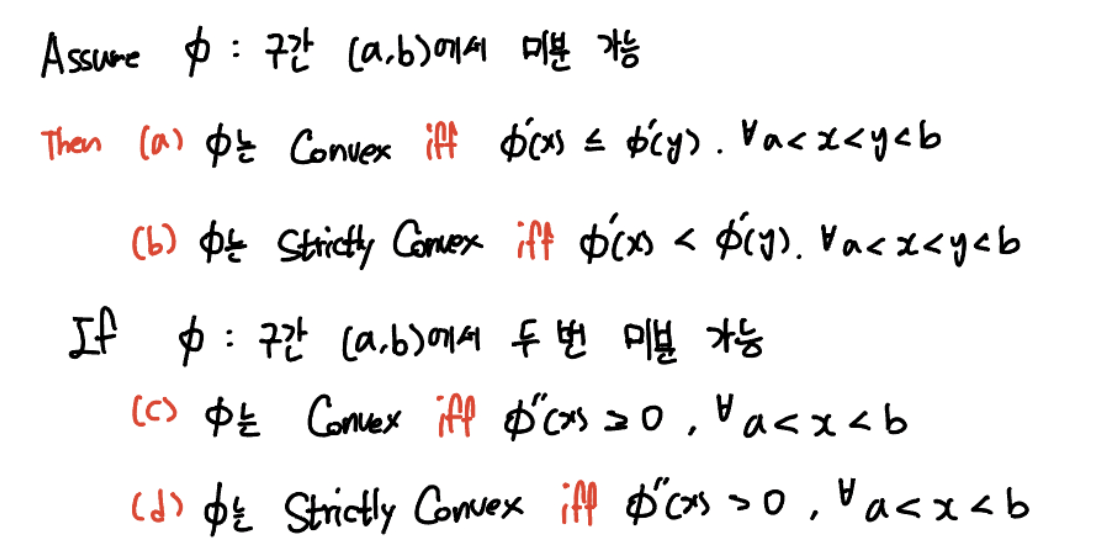 Assume ϕ : 구간 (a,b)에서 미분 가능
Then (a) ϕ는 Convex iff ϕ'(x) ≤ ϕ'(y). ∀a<x<y<b
(b) ϕ는 Strictly Convex iff ϕ'(x) < ϕ'(y). ∀a<x<y<b
If ϕ : 구간 (a,b)에서 두 번 미분 가능
(c) ϕ는 Convex iff ϕ''(x) ≥ 0, ∀a<x<b
(d) ϕ는 Strictly Convex iff ϕ''(x) > 0, ∀a<x<b